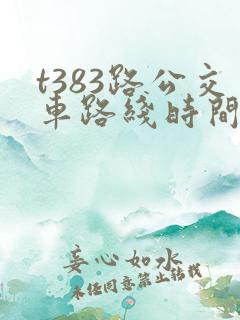 t383路公交
車路綫時間
妄心如水
未经同意禁止转载